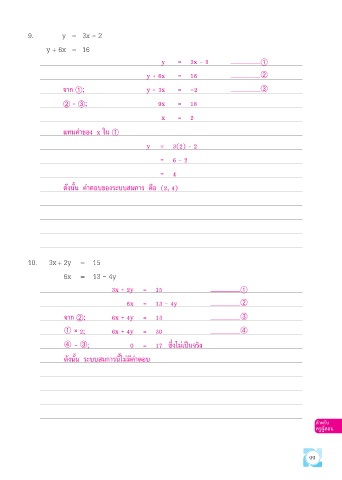 9. y = 3x – 2
y + 6x = 16
y = 3x – 2 ①
y + 6x = 16 ②
จาก ①; y – 3x = –2 ③
② – ③; 9x = 18
x = 2
แทนค่าของ x ใน ①
y = 3(2) – 2
= 6 – 2
= 4
ดังนั้น คำตอบของระบบสมการ คือ (2, 4)
10. 3x + 2y = 15
6x = 13 – 4y
3x + 2y = 15 ①
6x = 13 – 4y ②
จาก ②; 6x + 4y = 13 ③
① × 2; 6x + 4y = 30 ④
④ – ③; 0 = 17 ซึ่งไม่เป็นจริง
ดังนั้น ระบบสมการนี้ไม่มีคำตอบ
สำหรับ
ครูผู้สอน